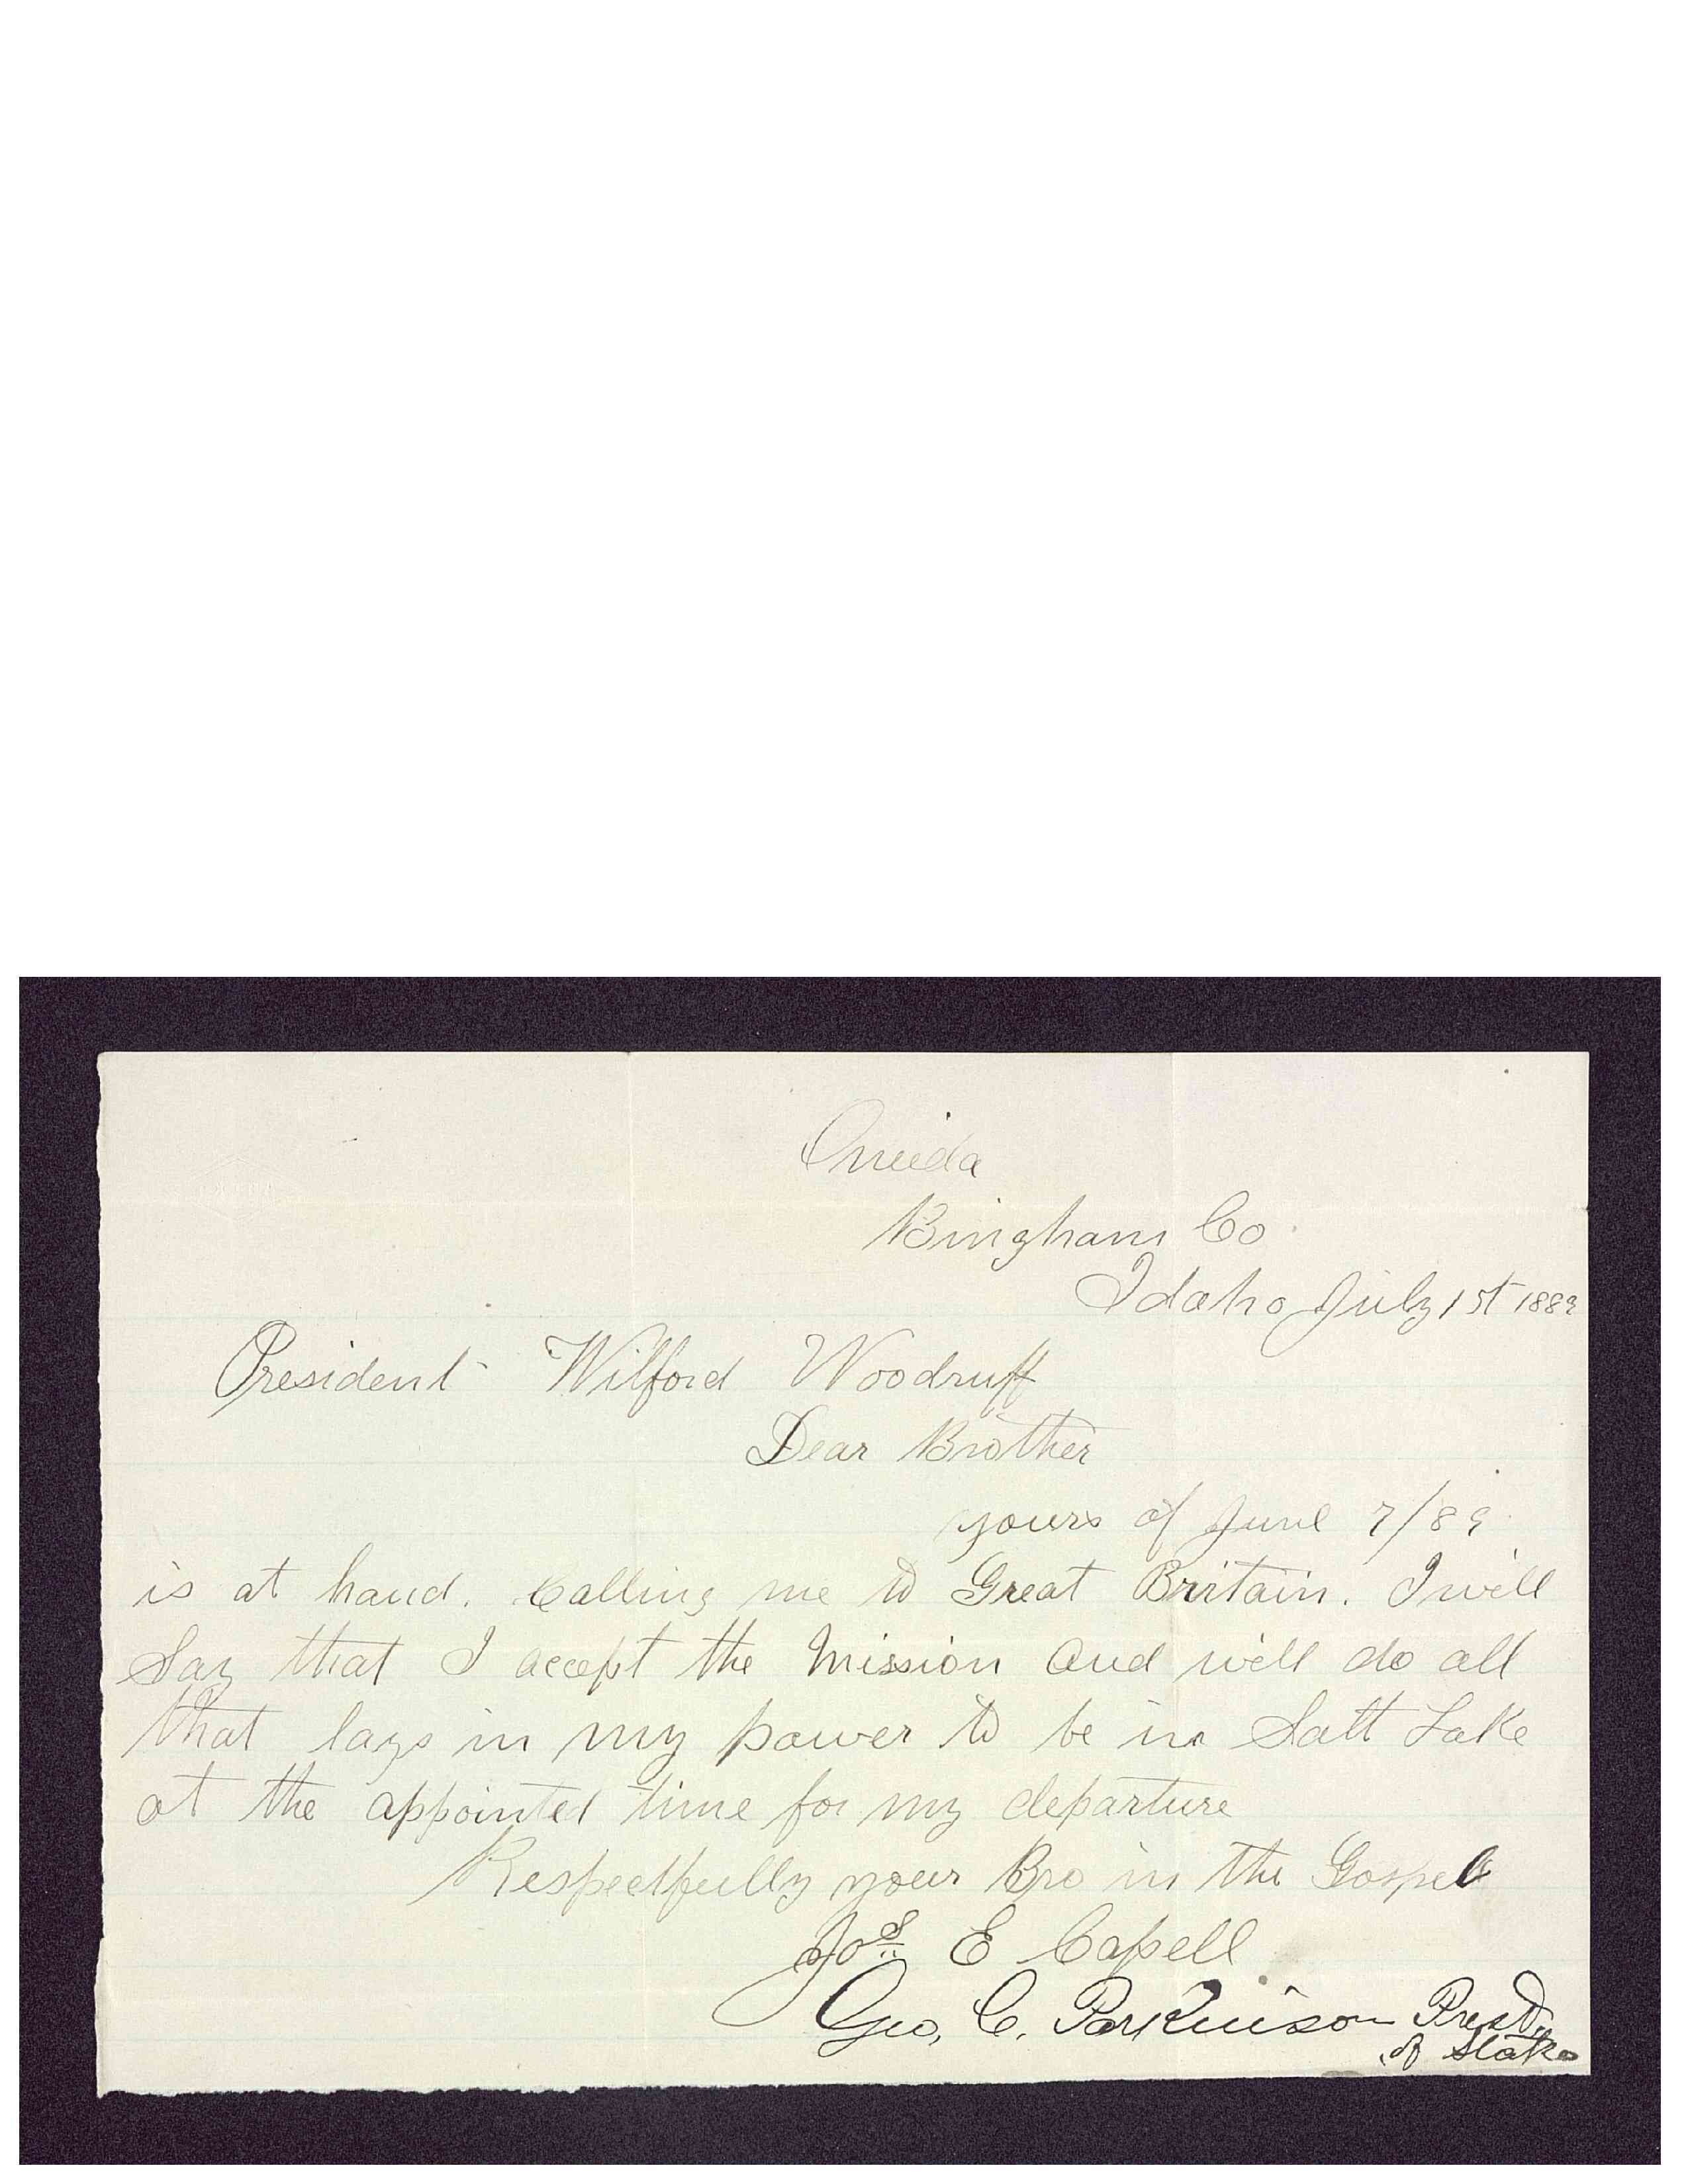 Oneida
Bingham Co
Idaho July 1st 1889
President Wilford Woodruff
Dear Brother
yours of June 7/89
is at hand. Calling me to Great Britain. I will
Say that I accept the Mission and will do all
that lays in my power to be in Salt Lake
at the appointed time for my departure
Respectfully your Bro in the Gospel
Jos E Capell
Geo, C. Parkinson Prest,
of Stake